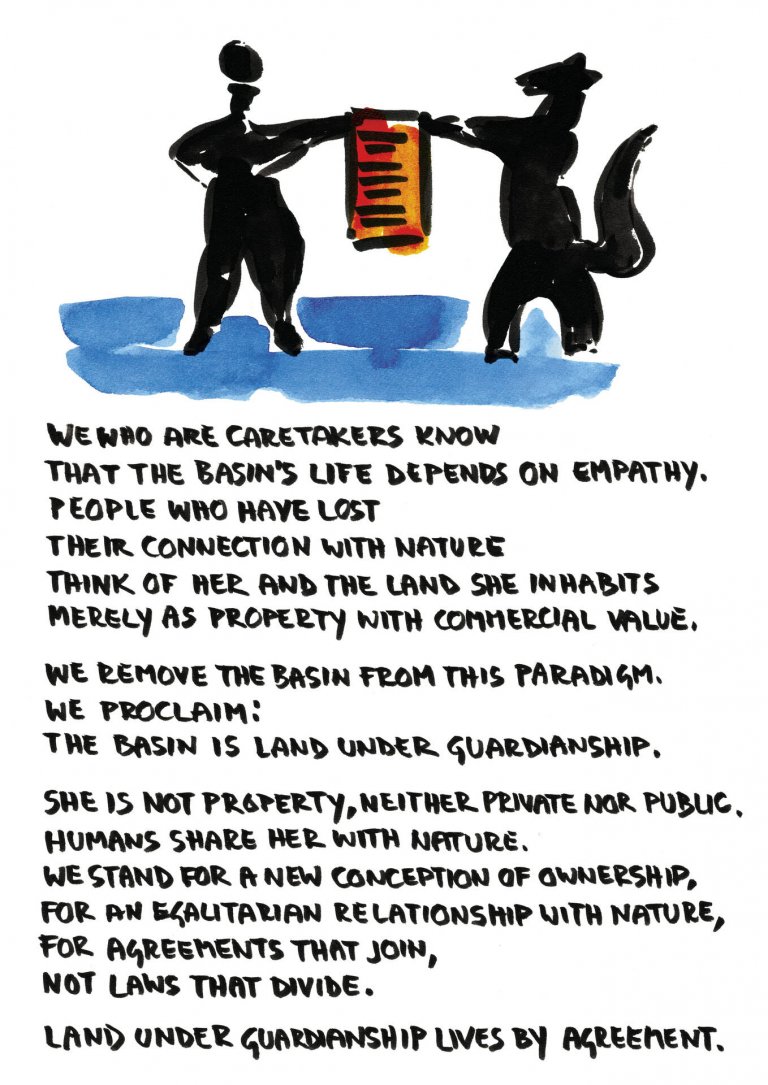 WE WHO ARE CARETAKERS KNOW
THAT THE BASIN'S LIFE DEPENDS ON EMPATHY.
PEOPLE WHO HAVE LOST
THEIR CONNECTION WITH NATURE
THINK OF HER AND THE LAND SHE INHABITS
MERELY AS PROPERTY WITH COMMERCIAL VALUE.
WE REMOVE THE BASIN FROM THIS PARADIGM.
WE PROCLAIM:
THE BASIN IS LAND UNDER GUARDIANSHIP.
SHE IS NOT PROPERTY, NEITHER PRIVATE NOR PUBLIC.
HUMANS SHARE HER WITH NATURE.
WE STAND FOR A NEW CONCEPTION OF OWNERSHIP,
FOR AN EGALITARIAN RELATIONSHIP WITH NATURE,
FOR AGREEMENTS THAT JOIN,
NOT LAWS THAT DIVIDE.
LAND UNDER GUARDIANSHIP LIVES BY AGREEMENT.